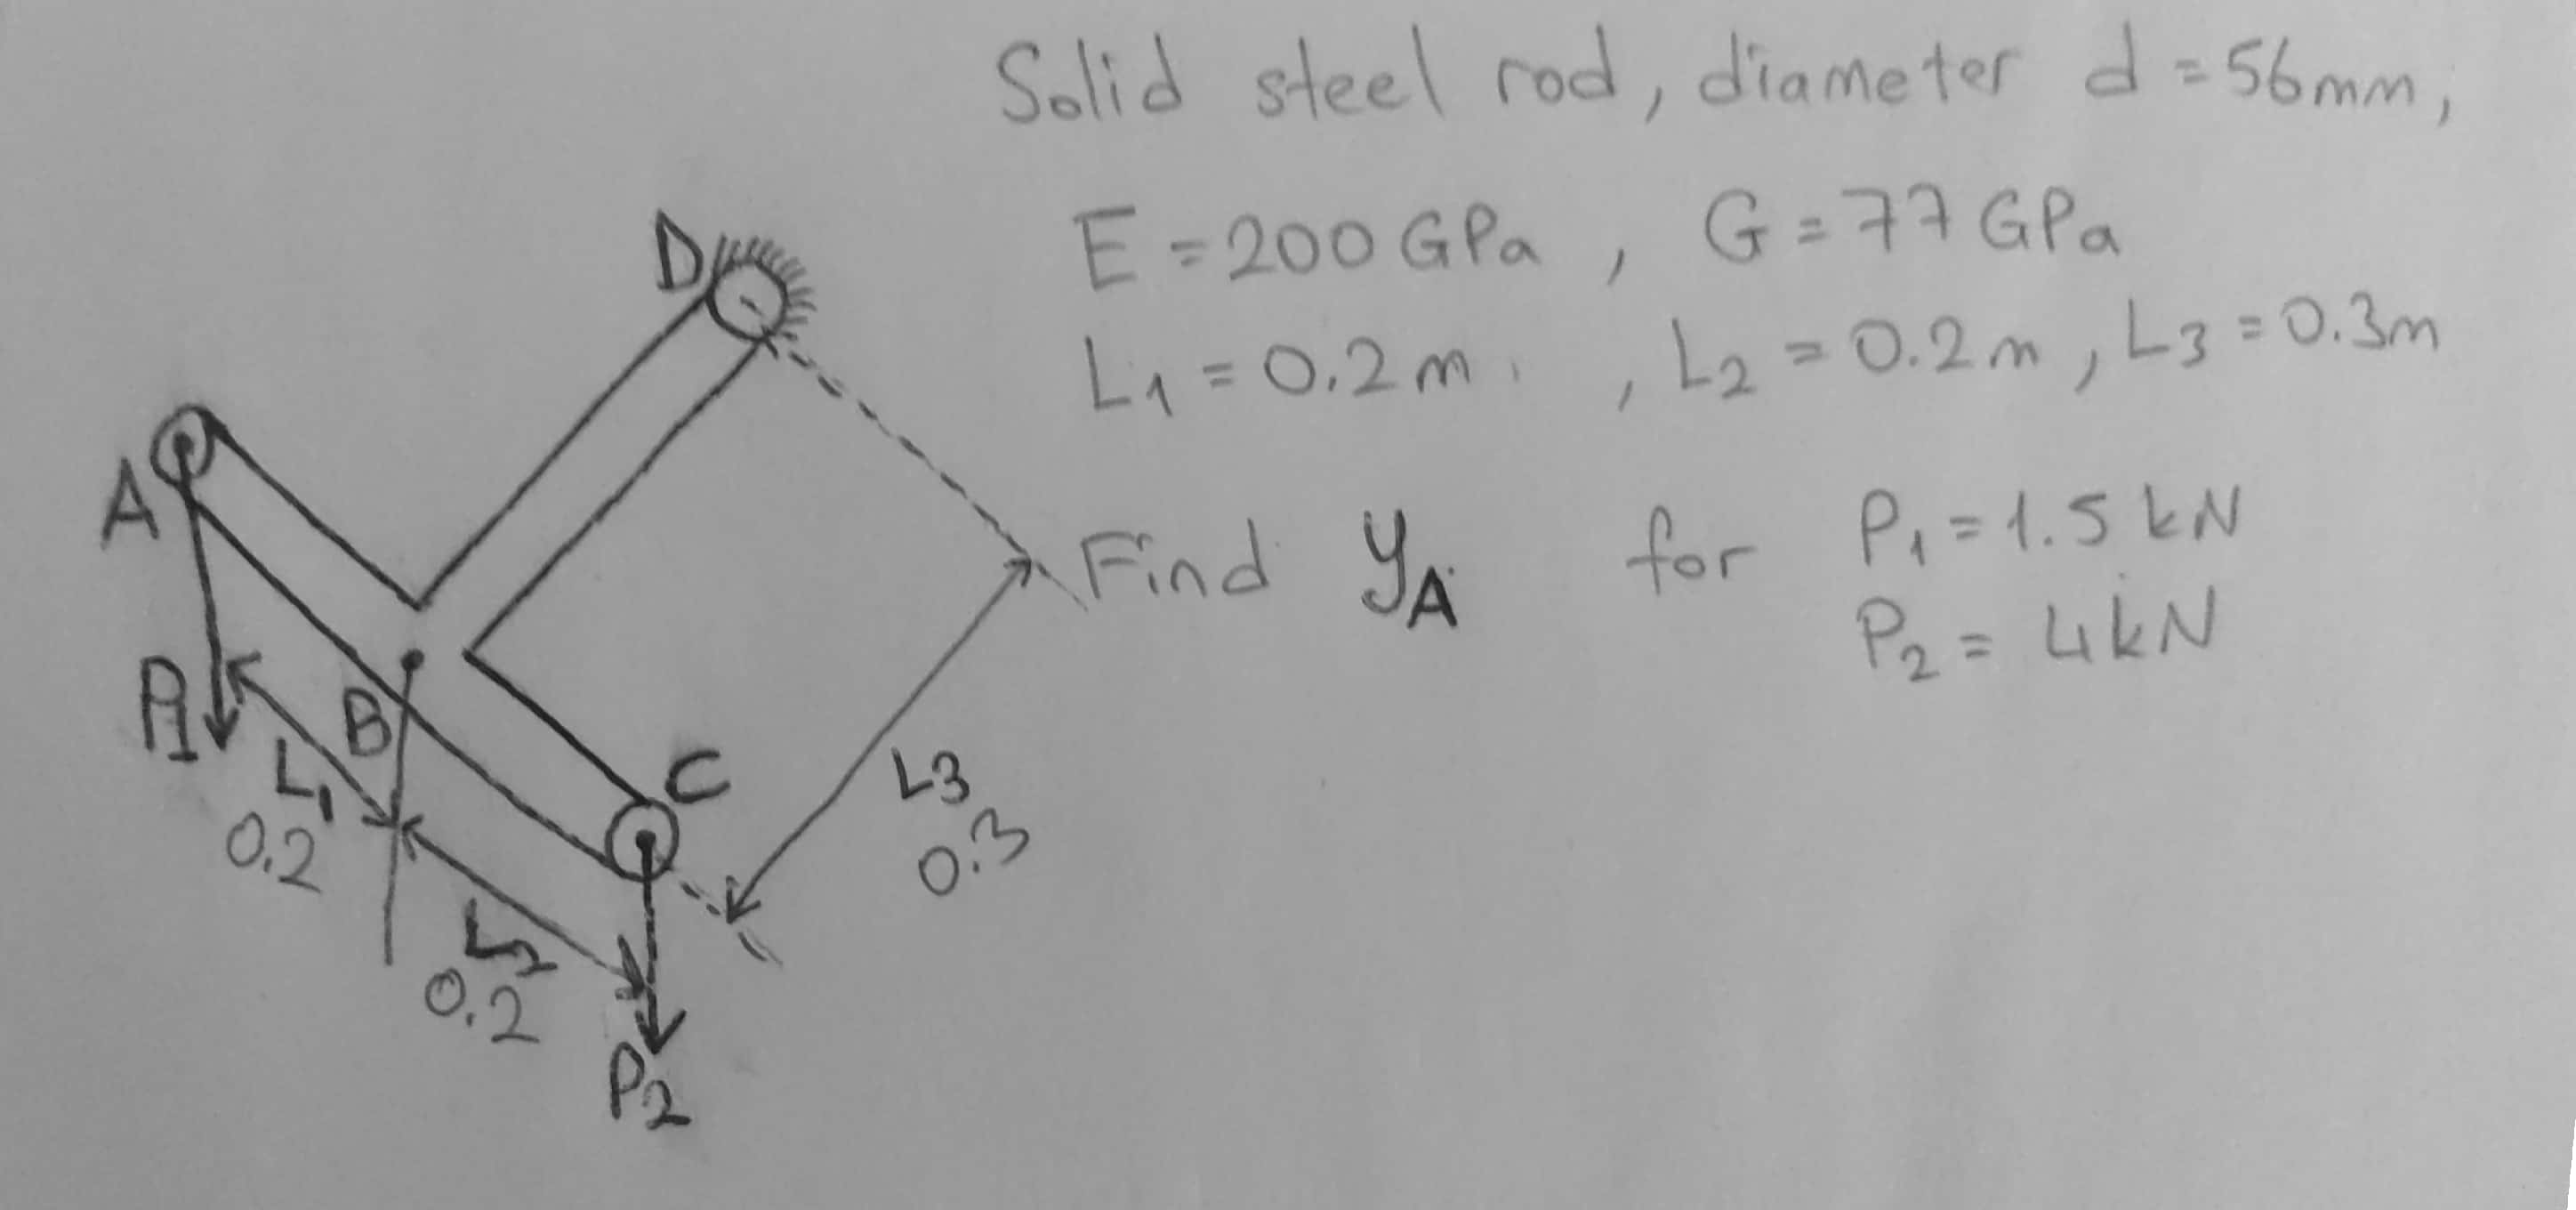 Solid steel rod, diameter d = 56mm,
E = 200 GPa , G = 77 GPa
L1 = 0.2 m , L2 = 0.2 m , L3 = 0.3m
Find yA for P1 = 1.5 kN
P2 = 4 kN
D
A
P1
B
L1
0.2
C
L3
0.3
L2
0.2
P2